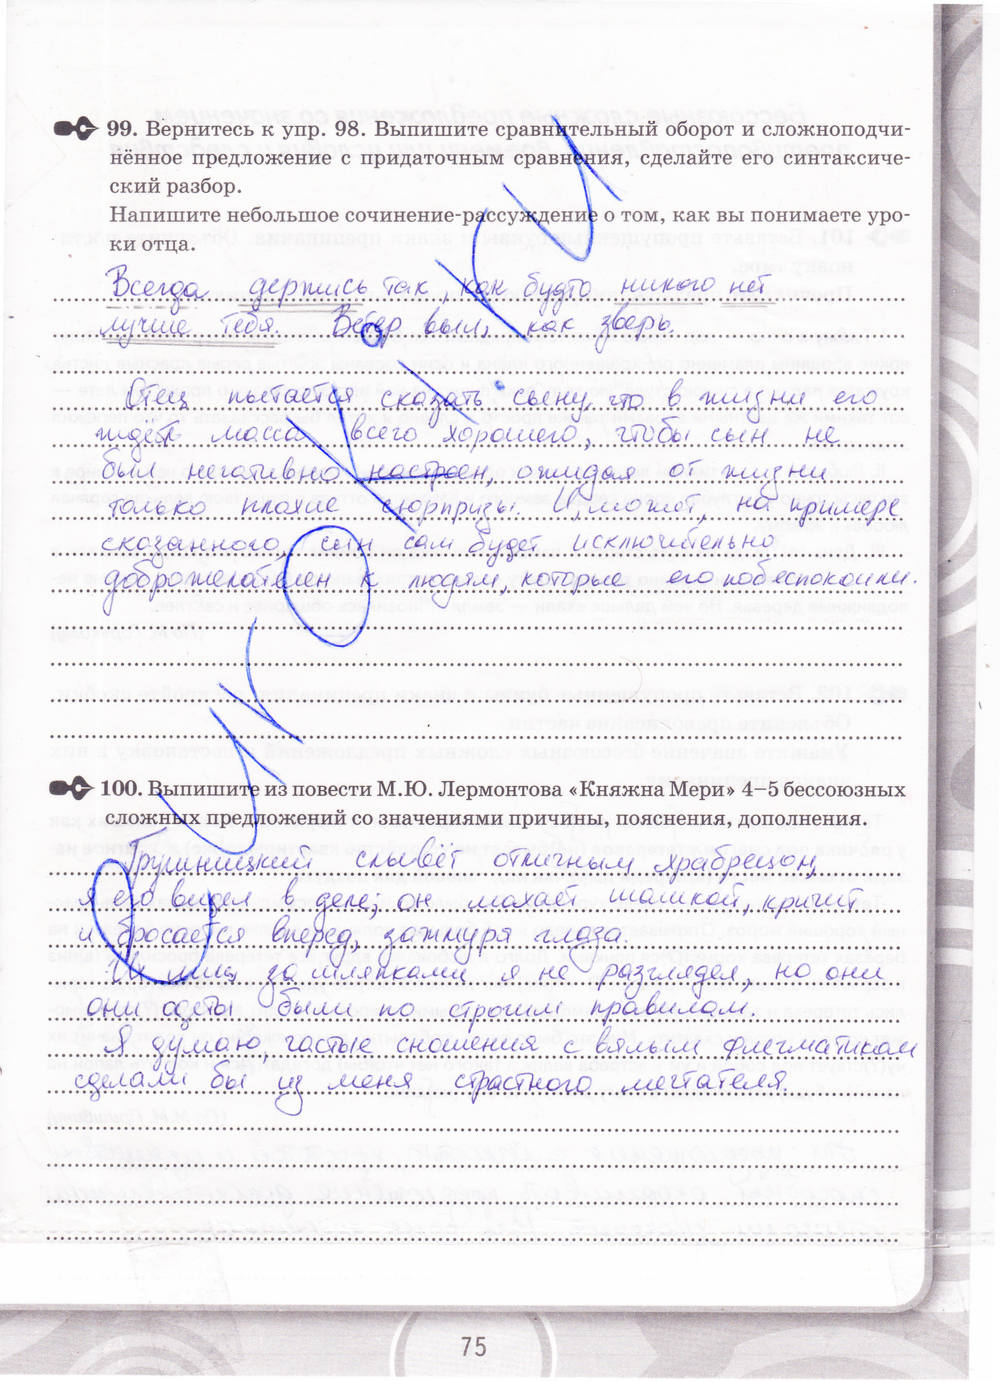 99. Вернитесь к упр. 98. Выпишите сравнительный оборот и сложноподчи-
нённое предложение с придаточным сравнения, сделайте его синтаксиче-
ский разбор.
Напишите небольшое сочинение-рассуждение о том, как вы понимаете уро-
ки отца.
Всегда держись так, как будто никого нет
лучше тебя. Ветер выл, как зверь.
Отец пытается сказать сыну, что в жизни его
ждёт масса всего хорошего, чтобы сын не
был негативно настроен, ожидая от жизни
только плохие сюрпризы. И, может, на примере
сказанного, сын сам будет исключительно
доброжелателен к людям, которые его побеспокоили.
100. Выпишите из повести М.Ю. Лермонтова «Княжна Мери» 4–5 бессоюзных
сложных предложений со значениями причины, пояснения, дополнения.
Грушницкий слывёт отличным храбрецом,
я его видел в деле; он махает шашкой, кричит
и бросается вперед, зажмуря глаза.
Их лиц за шляпками я не разглядел, но они
они одеты были по строгим правилам.
Я думаю, частые сношения с вялым флегматиком
сделали бы из меня страстного мечтателя.
75